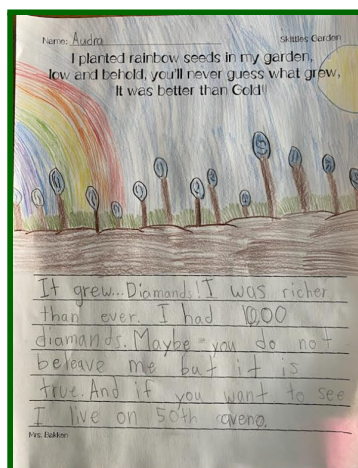 Name: Audra Skittles Garden
I planted rainbow seeds in my garden,
low and behold, you'll never guess what grew,
It was better than Gold!!
It grew...Diamands! I was richer
than ever. I had 10,00
diamands. Maybe you do not
beleave me but it is
true. And if you want to see
I live on 50th aveno.
Mrs. Bakken